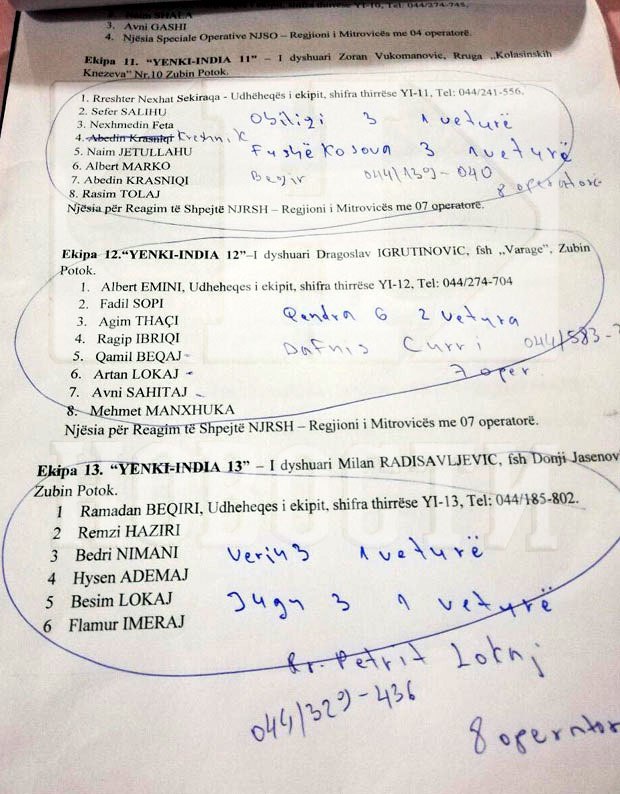 SHALA
3. Avni GASHI
4. Njësia Speciale Operative NJSO – Regjioni i Mitrovicës me 04 operatorë.
Ekipa 11. “YENKI-INDIA 11” – I dyshuari Zoran Vukomanovic, Rruga „Kolasinskih
Knezeva” Nr.10 Zubin Potok.
1. Rreshter Nexhat Sekiraqa - Udhëheqës i ekipit, shifra thirrëse YI-11, Tel: 044/241-556.
2. Sefer SALIHU
3. Nexhmedin Feta
Obiliqi 3 1 veturë
4. Abedin Krasniqi Kreshnik
5. Naim JETULLAHU
Fushë Kosova 3 1 veturë
6. Albert MARKO
7. Abedin KRASNIQI
Beqir 044/139-040
8 operator
8. Rasim TOLAJ
Njësia për Reagim të Shpejtë NJRSH – Regjioni i Mitrovicës me 07 operatorë.
Ekipa 12.“YENKI-INDIA 12”–I dyshuari Dragoslav IGRUTINOVIC, fsh „Varage”, Zubin
Potok.
1. Albert EMINI, Udheheqes i ekipit, shifra thirrëse YI-12, Tel: 044/274-704
2. Fadil SOPI
3. Agim THAÇI
Qendra 6 2 vetura
4. Ragip IBRIQI
Dafnis Curri 044/583-
5. Qamil BEQAJ -
6. Artan LOKAJ -
7 oper
7. Avni SAHITAJ -
8. Mehmet MANXHUKA
Njësia për Reagim të Shpejtë NJRSH – Regjioni i Mitrovicës me 07 operatorë.
Ekipa 13. “YENKI-INDIA 13” – I dyshuari Milan RADISAVLJEVIC, fsh Donji Jasenov
Zubin Potok.
1 Ramadan BEQIRI, Udheheqes i ekipit, shifra thirrëse YI-13, Tel: 044/185-802.
2 Remzi HAZIRI
3 Bedri NIMANI
Veriu 3 1 veturë
4 Hysen ADEMAJ
5 Besim LOKAJ
Jugu 3 1 veturë
6 Flamur IMERAJ
Rr. Petrit Lokaj
044/329-436
8 operator
НОВОСТИ